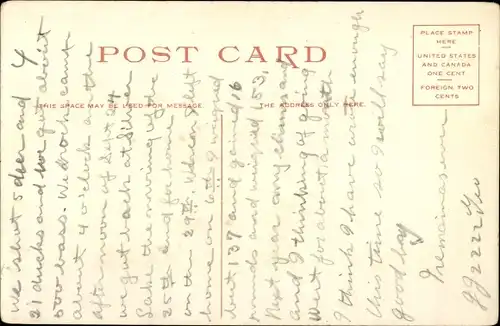 POST CARD
THIS SPACE MAY BE USED FOR MESSAGE
THE ADDRESS ONLY HERE.
PLACE STAMP
HERE
UNITED STATES
AND CANADA
ONE CENT
FOREIGN, TWO
CENTS
we shot 5 deer and 4
21 ducks and we got about
500 bass. We broke camp
about 4 o'clock on the
afternoon of Sept 24
we got back at Silver
Lake the morning of the
25th and for home
on the 29th. When I left
home on 6th I weighed
but 137 and gained 16
pounds and weighed 153.
Next year any
and I thinking of going
West for about a month
I think I have wrote enough
this time so I will say
good bay
I remain as ever